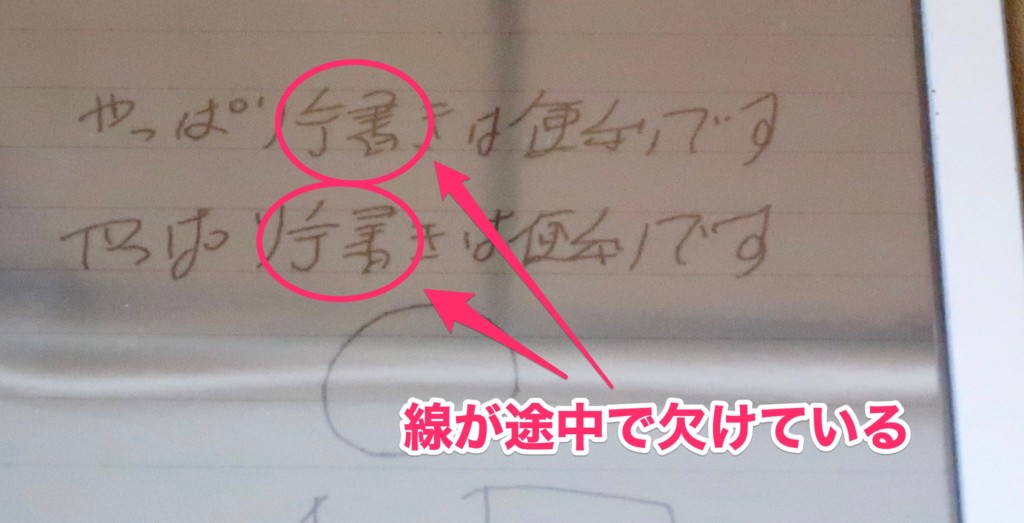 やっぱり手書きは便利です
やっぱり手書きは便利です
線が途中で欠けている